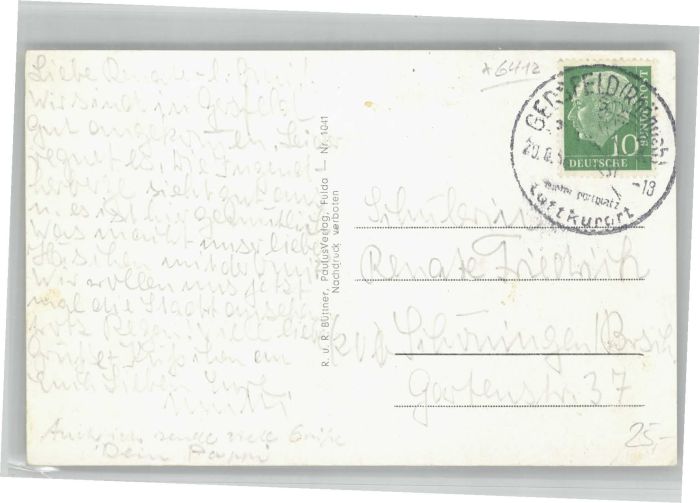 *6412
Liebe Renate
Wir sind in Gersfeld
gut angekommen. Leider
regnet es, die Jugend-
herberge sieht gut aus
u. es ist hier gemütlich
Was macht unser liebes
Häschen mit der Omi
Wir wollen uns jetzt
mal die Stadt ansehen
trotz Regen! viele liebe
Grüße + Küßchen an
Euch Lieben Eure
Mutti
Auch ich sende viele Grüße
Dein Pappi
R. u. R. Büttner, PaulusVerlag, Fulda — Nr. 1041
Nachdruck verboten
GERSFELD (RHÖN)
20.8.
-13
Luftkurort
10
DEUTSCHE
BUNDESPOST
Schülerin
Renate Friedrich
Schöningen/Brsch
Gartenstr. 37
25,-